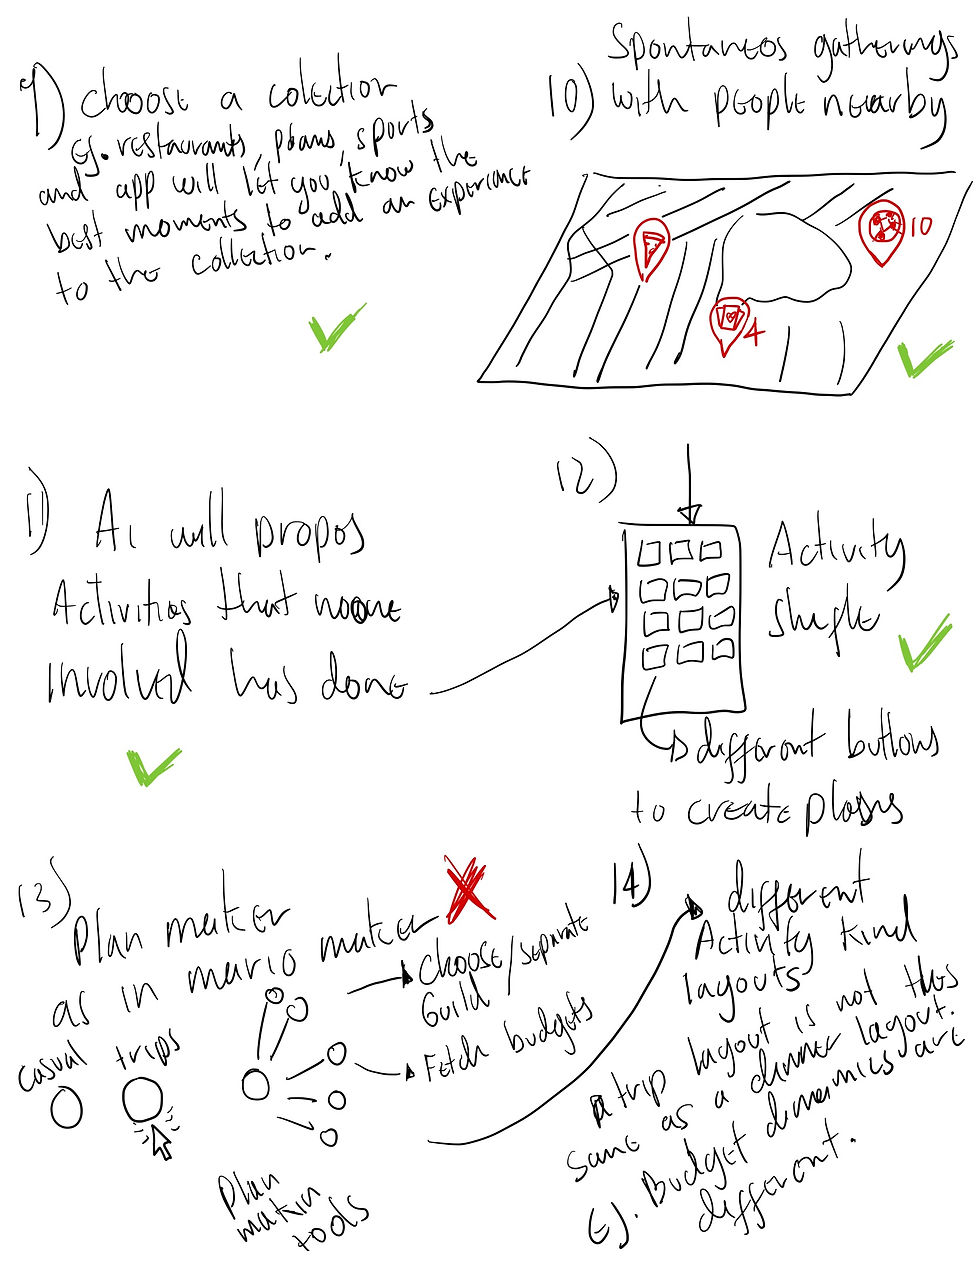 9) choose a colection
EJ. restaurants, plans, sports
and app will let you know the
best moments to add an experience
to the collection.
Spontaneos gatherings
10) with people nearby
10
4
11) AI will propos
Activities that noone
involved has done
12)
Activity
shufle
different buttons
to create plans
13) Plan maker
as in mario maker
casual trips
choose/separate
Guild
Fetch budgets
Plan
makin
tools
14) different
Activity kind
layouts
A trip layout is not the
same as a dinner layout.
EJ. Budget dinamics are
different.